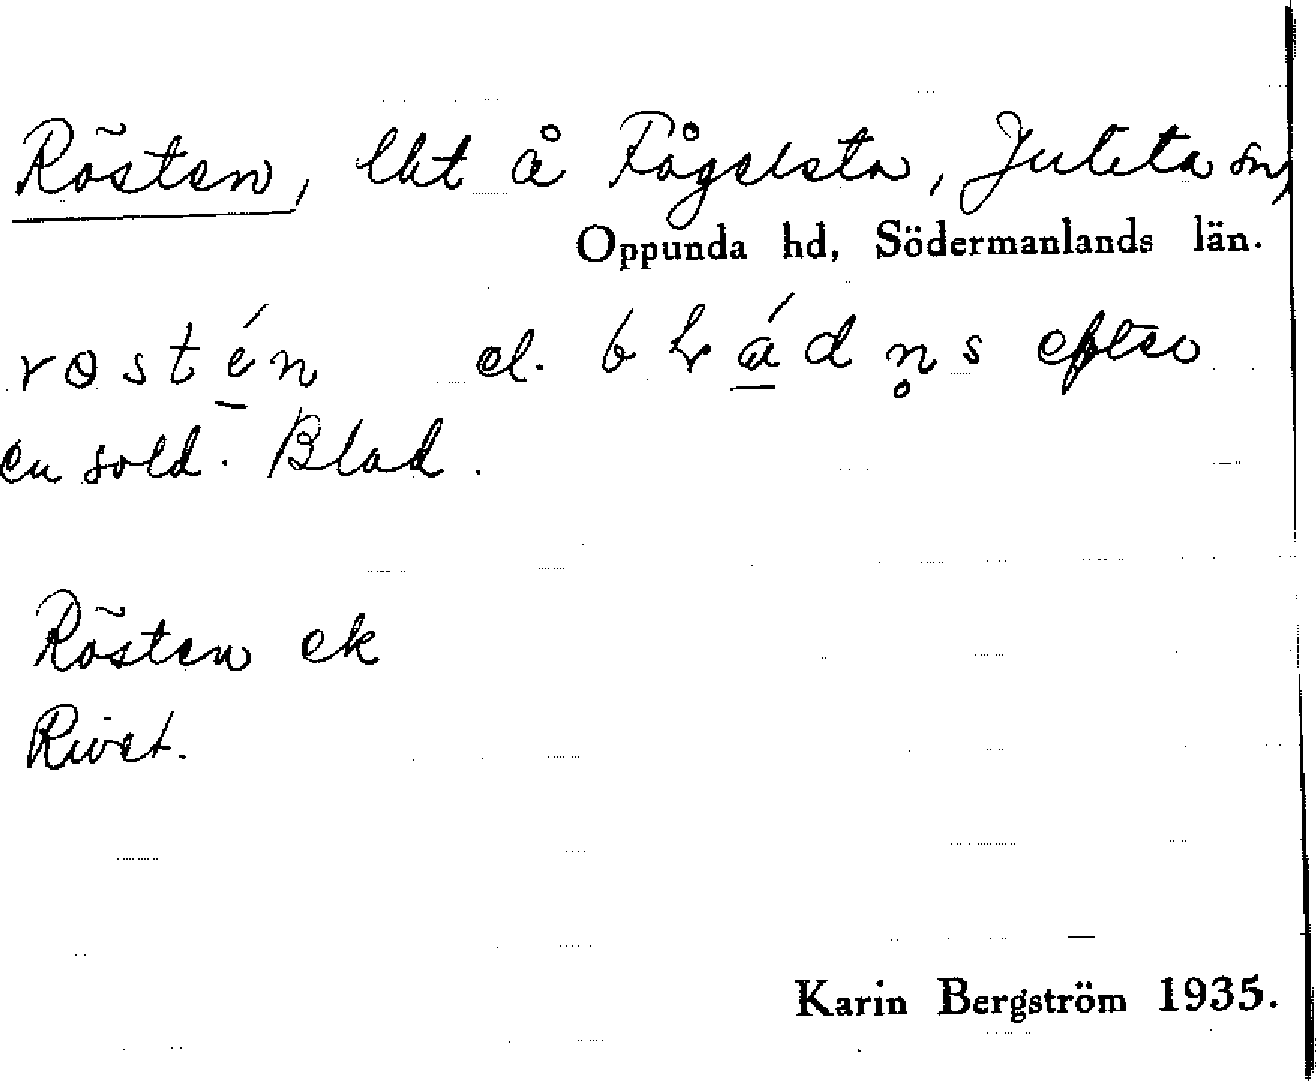 Rösten, lht å Fågelsta, Juleta sn,
Oppunda hd, Södermanlands län.
rɵstén el. bládn̥s efter
en sold. Blad.
Rösten ek
Rivet.
Karin Bergström 1935.